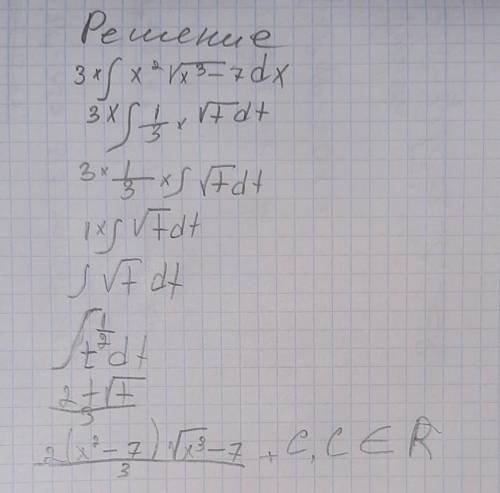 Решение
3 × ∫ x² √x³ - 7 dx
3 × ∫ 1/3 × √t dt
3 × 1/3 × ∫ √t dt
1 × ∫ √t dt
∫ √t dt
∫ t^1/2 dt
2t√t/3
2(x² - 7) √x³ - 7/3 + C, C ∈ R